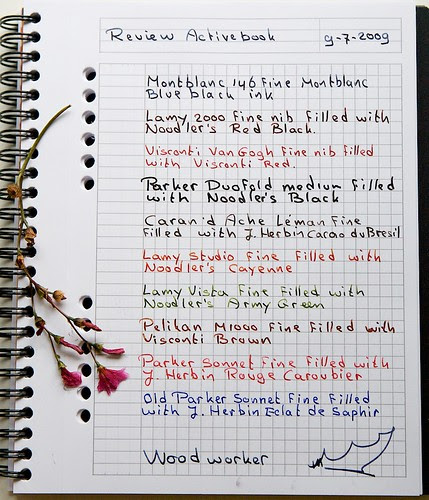 Review Activebook
9-7-2009
Montblanc 146 Fine Montblanc
Blue black ink
Lamy 2000 Fine nib filled with
Noodler's Red Black.
Visconti Van Gogh fine nib filled
with Visconti Red.
Parker Duofold medium filled
with Noodler's Black
Caran'd Ache Léman Fine
filled with J. Herbin Cacao du Bresil
Lamy Studio Fine filled with
Noodler's Cayenne
Lamy Vista Fine filled with
Noodler's Army Green
Pelikan M1000 Fine filled with
Visconti Brown
Parker Sonnet Fine filled with
J. Herbin Rouge Caroubier
Old Parker Sonnet fine filled
with J. Herbin Eclat de Saphir
Wood worker